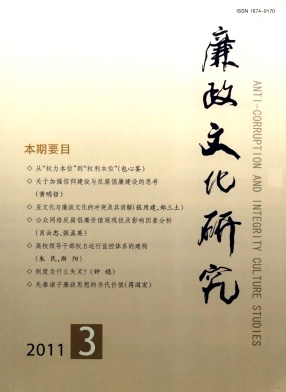 ISSN 1674-9170
廉政文化研究
ANTI-CORRUPTION AND INTEGRITY CULTURE STUDIES
本期要目
◇ 从“权力本位”到“权利本位”(包心鉴)
◇ 关于加强信仰建设与反腐倡廉建设的思考
(黄明哲)
◇ 亚文化与廉政文化的冲突及其消解(张国建,郝三太)
◇ 公众网络反腐倡廉价值观现状及影响因素分析
(芮云志,张孟英)
◇ 高校领导干部权力运行监控体系的建构
(朱民,靳阳)
◇ 制度为什么失灵?(钟稳)
◇ 先秦诸子廉政思想的当代价值(蒋国宏)
2011 3